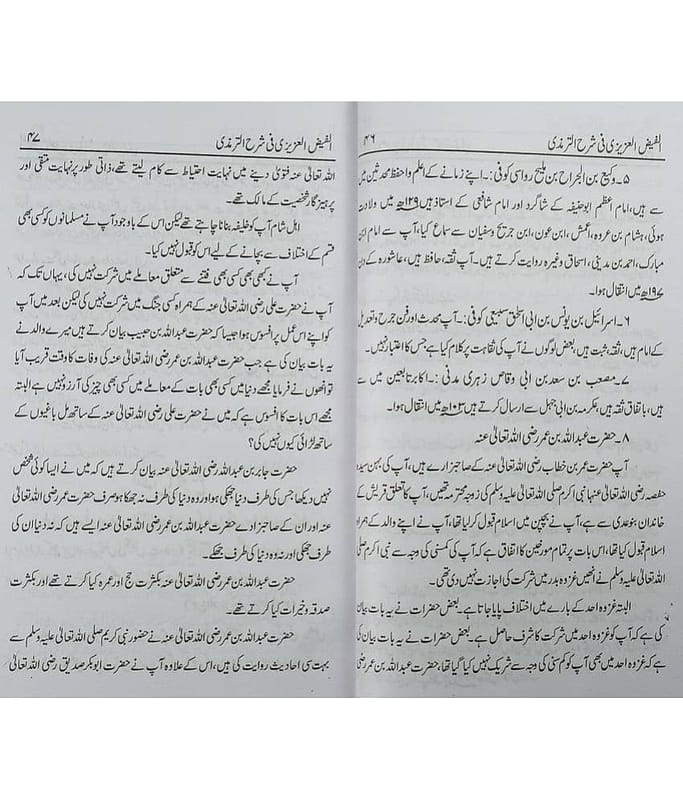 الفیض العزیزی فی شرح الترمذی ۴۶
۵۔وکیع بن الجراح بن ملیح رواسی کوفی:۔اپنے زمانے کے اعلم و احفظ محدثین میں
سے ہیں، امام اعظم ابوحنیفہ کے شاگرد اور امام شافعی کے استاذ ہیں ۱۲۹ھ میں ولادت
ہوئی، ہشام بن عروہ، اعمش، ابن عون، ابن جریج و سفیان سے سماع کیا، آپ سے امام ابن
مبارک، احمد بن مدینی، اسحاق وغیرہ روایت کرتے ہیں۔آپ ثقہ، حافظ ہیں، عاشورہ کے دن
۱۹۷ھ میں انتقال ہوا۔
۶۔اسرائیل بن یونس بن ابی اسحٰق سبیعی کوفی:۔آپ محدث اور فن جرح و تعدیل
کے امام ہیں، ثقہ، ثبت ہیں، بعض لوگوں نے آپ کی ثقاہت پر کلام کیا ہے جس کا اعتبار نہیں۔
۷۔مصعب بن سعد بن ابی وقاص زہری مدنی:۔اکابر تابعین میں سے
ہیں، باتفاق ثقہ ہیں، عکرمہ بن ابی جہل سے ارسال کرتے ہیں ۱۰۳ھ میں انتقال ہوا۔
۸۔حضرت عبداللہ بن عمر رضی اللہ تعالیٰ عنہ
آپ حضرت عمر بن خطاب رضی اللہ تعالیٰ عنہ کے صاحبزادے ہیں، آپ کی بہن سیدہ
حفصہ رضی اللہ تعالیٰ عنہا نبی اکرم صلی اللہ تعالیٰ علیہ وسلم کی زوجہ محترمہ تھیں، آپ کا تعلق قریش کے
خاندان بنو عدی سے ہے، آپ نے بچپن میں اسلام قبول کر لیا تھا، آپ نے اپنے والد کے ہمراہ
اسلام قبول کیا تھا، اس بات پر تمام مورخین کا اتفاق ہے کہ آپ کی کمسنی کی وجہ سے نبی اکرم صلی
اللہ تعالیٰ علیہ وسلم نے انھیں غزوہ بدر میں شرکت کی اجازت نہیں دی تھی۔
البتہ غزوہ احد کے بارے میں اختلاف پایا جاتا ہے۔بعض حضرات نے یہ بات بیان
کی ہے کہ آپ کو غزوہ احد میں شرکت کا شرف حاصل ہے۔بعض حضرات نے یہ بات بیان کی
ہے کہ غزوہ احد میں بھی آپ کو کم سنی کی وجہ سے شریک نہیں کیا گیا تھا، حضرت عبداللہ بن عمر رضی
الفیض العزیزی فی شرح الترمذی ۴۷
اللہ تعالیٰ عنہ فتویٰ دینے میں نہایت احتیاط سے کام لیتے تھے، ذاتی طور پر نہایت متقی اور
پرہیزگار شخصیت کے مالک تھے۔
اہل شام آپ کو خلیفہ بنانا چاہتے تھے لیکن اس کے باوجود آپ نے مسلمانوں کو کسی بھی
قسم کے اختلاف سے بچانے کے لیے اس کو قبول نہیں کیا۔
آپ نے کبھی بھی کسی بھی فتنے سے متعلق معاملے میں شرکت نہیں کی، یہاں تک کہ
آپ نے حضرت علی رضی اللہ تعالیٰ عنہ کے ہمراہ کسی جنگ میں شرکت نہیں کی لیکن بعد میں آپ
کو اپنے اس عمل پر افسوس ہوا جیسا کہ حضرت عبداللہ بن حبیب بیان کرتے ہیں میرے والد نے
یہ بات بیان کی ہے جب حضرت عبداللہ بن عمر رضی اللہ تعالیٰ عنہ کی وفات کا وقت قریب آیا
تو انھوں نے فرمایا مجھے دنیا میں کسی بھی بات کے معاملے میں کسی بھی چیز کی آرزو نہیں ہے البتہ
مجھے اس بات کا افسوس ہے کہ میں نے حضرت علی رضی اللہ تعالیٰ عنہ کے ساتھ مل باغیوں کے
ساتھ لڑائی کیوں نہیں کی؟
حضرت جابر بن عبداللہ رضی اللہ تعالیٰ عنہ بیان کرتے ہیں کہ میں نے ایسا کوئی شخص
نہیں دیکھا جس کی طرف دنیا جھکی ہو اور وہ دنیا کی طرف نہ جھکا ہو صرف حضرت عمر رضی اللہ تعالیٰ
عنہ اور ان کے صاحبزادے حضرت عبداللہ بن عمر رضی اللہ تعالیٰ عنہ ایسے ہیں کہ نہ دنیا ان کی
طرف جھکی اور نہ وہ دنیا کی طرف جھکے۔
حضرت عبداللہ بن عمر رضی اللہ تعالیٰ عنہ بکثرت حج اور عمرہ کیا کرتے تھے اور بکثرت
صدقہ و خیرات کیا کرتے تھے۔
حضرت عبداللہ بن عمر رضی اللہ تعالیٰ عنہ نے حضور نبی کریم صلی اللہ تعالیٰ علیہ وسلم سے
بہت سی احادیث روایت کی ہیں، اس کے علاوہ آپ نے حضرت ابوبکر صدیق رضی اللہ تعالیٰ